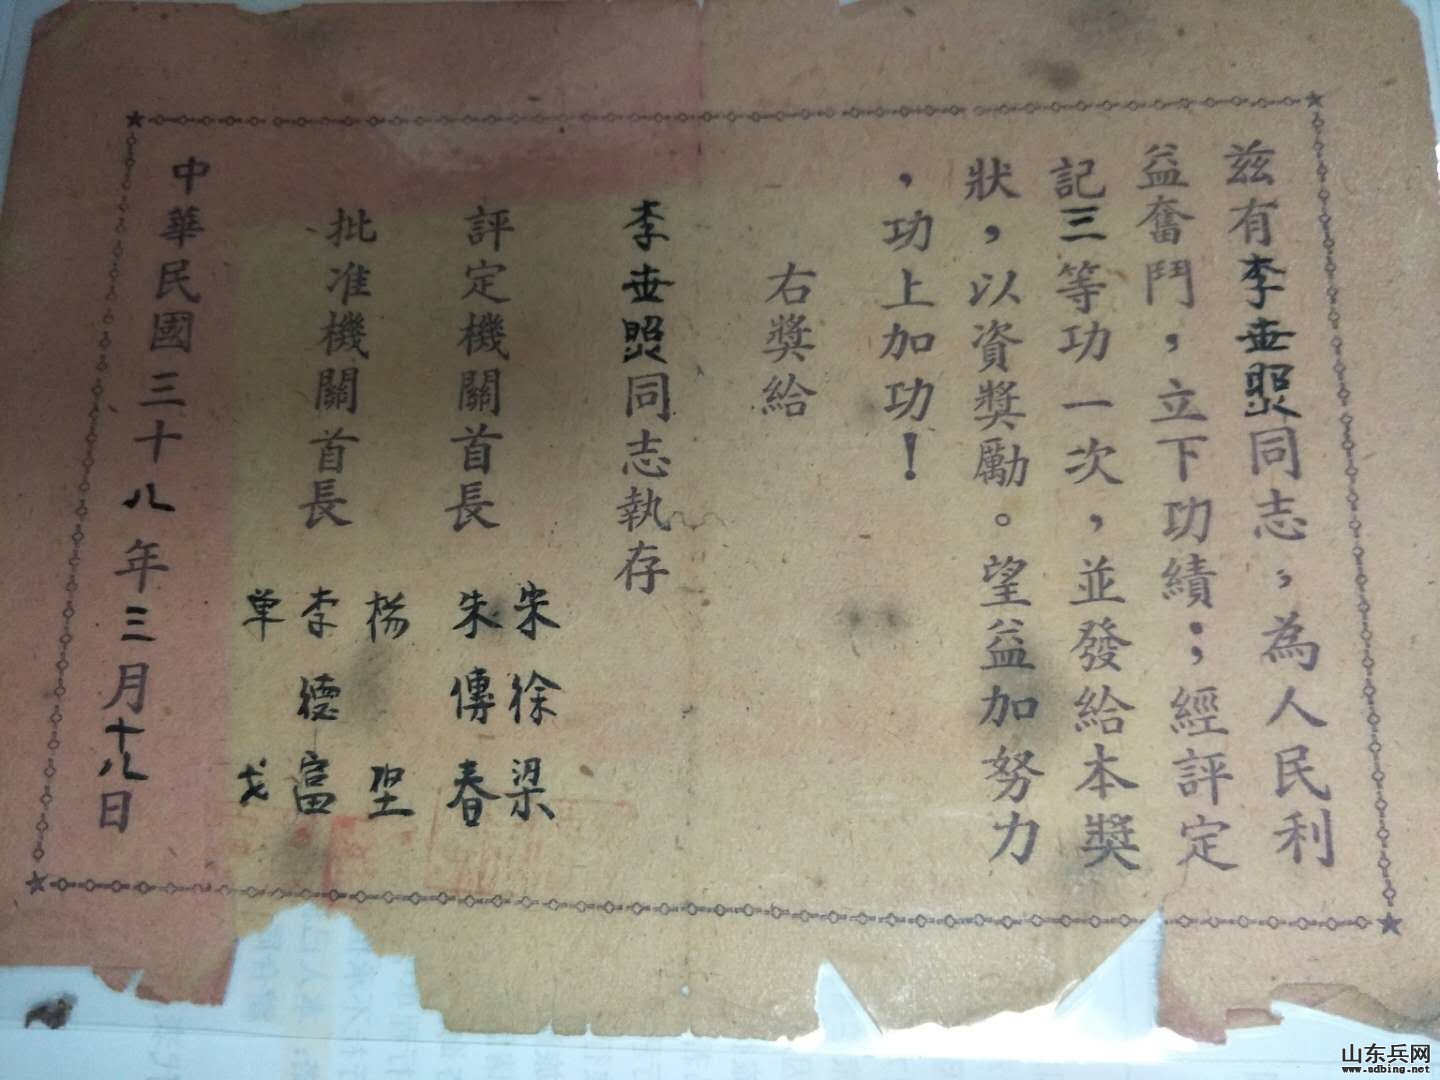 茲有李世照同志，為人民利
益奮鬥，立下功績；經評定
記三等功一次，並發給本獎
狀，以資獎勵。望益加努力
，功上加功！
右獎給
李世照同志執存
評定機關首長 宋徐梁
朱傳春
批准機關首長 楊堅
李德富
单戈
中華民國三十八年三月十八日
山东兵网
www.sdbing.net